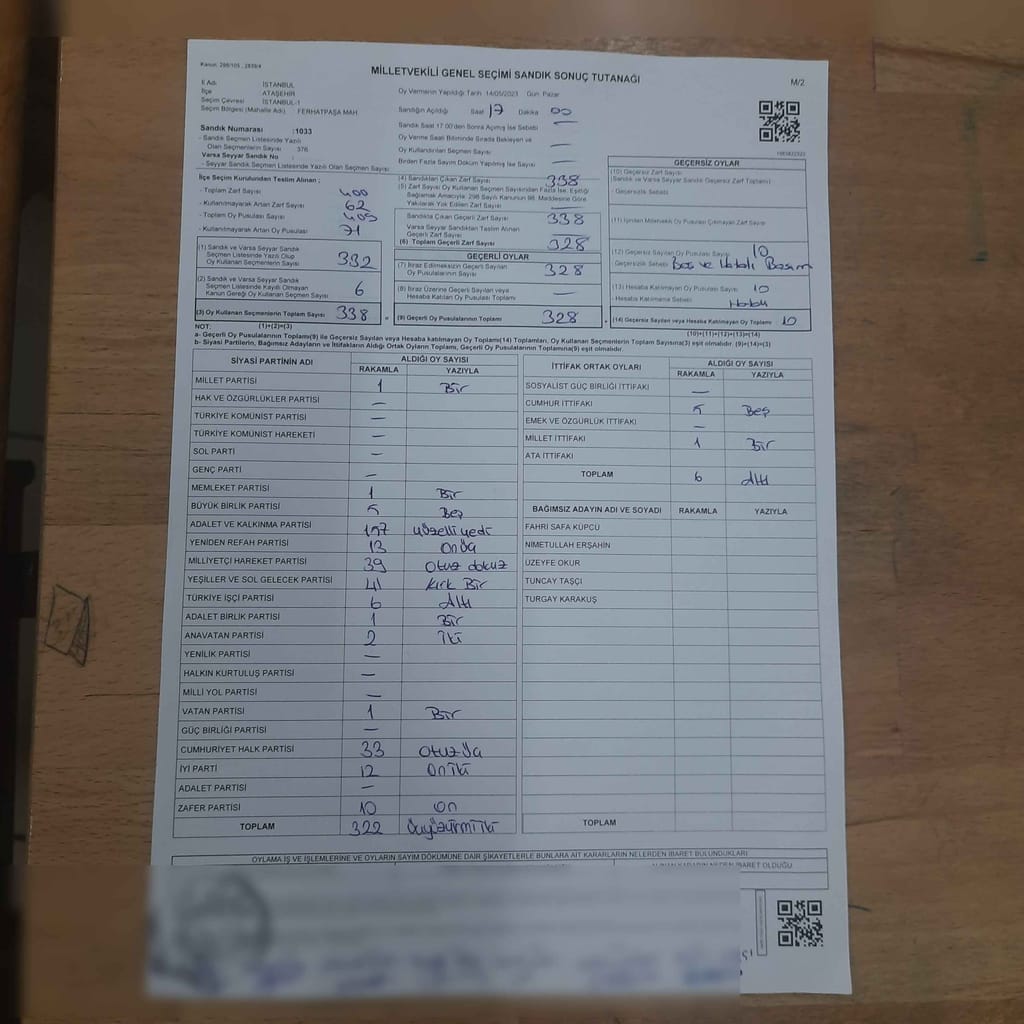 Kanun: 298/105 , 2839/4
MİLLETVEKİLİ GENEL SEÇİMİ SANDIK SONUÇ TUTANAĞI
M/2
İl Adı : İSTANBUL
İlçe : ATAŞEHİR
Seçim Çevresi : İSTANBUL-1
Seçim Bölgesi (Mahalle Adı) : FERHATPAŞA MAH.
Sandık Numarası :1033
- Sandık Seçmen Listesinde Yazılı
Olan Seçmenlerin Sayısı : 376
Varsa Seyyar Sandık No :
- Seyyar Sandık Seçmen Listesinde Yazılı Olan Seçmen Sayısı
Oy Vermenin Yapıldığı Tarih :14/05/2023 Gün: Pazar
Sandığın Açıldığı Saat 17 Dakika 00
Sandık Saat 17.00'den Sonra Açılmış İse Sebebi —
Oy Verme Saati Bitiminde Sırada Bekleyen ve
Oy Kullandırılan Seçmen Sayısı —
Birden Fazla Sayım Döküm Yapılmış İse Sayısı —
İlçe Seçim Kurulundan Teslim Alınan ;
- Toplam Zarf Sayısı 400
- Kullanılmayarak Artan Zarf Sayısı 62
- Toplam Oy Pusulası Sayısı 409
- Kullanılmayarak Artan Oy Pusulası 71
(1) Sandık ve Varsa Seyyar Sandık
Seçmen Listesinde Yazılı Olup
Oy Kullanan Seçmenlerin Sayısı 332
(2) Sandık ve Varsa Seyyar Sandık
Seçmen Listesinde Kayıtlı Olmayan
Kanun Gereği Oy Kullanan Seçmen Sayısı 6
(3) Oy Kullanan Seçmenlerin Toplam Sayısı 338
(1)+(2)=(3)
(4) Sandıktan Çıkan Zarf Sayısı 338
(5) Zarf Sayısı Oy Kullanan Seçmen Sayısından Fazla İse, Eşitliği
Sağlamak Amacıyla; 298 Sayılı Kanunun 98. Maddesine Göre
Yakılarak Yok Edilen Zarf Sayısı —
Sandıkta Çıkan Geçerli Zarf Sayısı 338
Varsa Seyyar Sandıktan Teslim Alınan
Geçerli Zarf Sayısı —
(6) Toplam Geçerli Zarf Sayısı 328
GEÇERLİ OYLAR
(7) İtiraz Edilmeksizin Geçerli Sayılan
Oy Pusulalarının Sayısı 328
(8) İtiraz Üzerine Geçerli Sayılan veya
Hesaba Katılan Oy Pusulaları Toplamı —
(9) Geçerli Oy Pusulalarının Toplamı 328
GEÇERSİZ OYLAR
(10) Geçersiz Zarf Sayısı
(Sandık ve Varsa Seyyar Sandık Geçersiz Zarf Toplamı)
- Geçersizlik Sebebi
(11) İçinden Milletvekili Oy Pusulası Çıkmayan Zarf Sayısı
(12) Geçersiz Sayılan Oy Pusulası Sayısı 10
Geçersizlik Sebebi Boş ve Hatalı Basım
(13) Hesaba Katılmayan Oy Pusulası Sayısı 10
- Hesaba Katılmama Sebebi
(14) Geçersiz Sayılan veya Hesaba Katılmayan Oy Toplamı 10
(10)+(11)+(12)+(13)=(14)
NOT:
a- Geçerli Oy Pusulalarının Toplamı(9) ile Geçersiz Sayılan veya Hesaba katılmayan Oy Toplamı(14) Toplamları, Oy Kullanan Seçmenlerin Toplam Sayısına(3) eşit olmalıdır. (9)+(14)=(3)
b- Siyasi Partilerin, Bağımsız Adayların ve İttifakların Aldığı Ortak Oyların Toplamı, Geçerli Oy Pusulalarının Toplamına(9) eşit olmalıdır.
SİYASİ PARTİNİN ADI ALDIĞI OY SAYISI
RAKAMLA YAZIYLA
MİLLET PARTİSİ 1 Bir
HAK VE ÖZGÜRLÜKLER PARTİSİ —
TÜRKİYE KOMÜNİST PARTİSİ —
TÜRKİYE KOMÜNİST HAREKETİ —
SOL PARTİ —
GENÇ PARTİ —
MEMLEKET PARTİSİ 1 Bir
BÜYÜK BİRLİK PARTİSİ 5 Beş
ADALET VE KALKINMA PARTİSİ 157 yüzelli yedi
YENİDEN REFAH PARTİSİ 13 Onüç
MİLLİYETÇİ HAREKET PARTİSİ 39 Otuz dokuz
YEŞİLLER VE SOL GELECEK PARTİSİ 41 Kırk Bir
TÜRKİYE İŞÇİ PARTİSİ 6 Altı
ADALET BİRLİK PARTİSİ 1 Bir
ANAVATAN PARTİSİ 2 İki
YENİLİK PARTİSİ —
HALKIN KURTULUŞ PARTİSİ —
MİLLİ YOL PARTİSİ —
VATAN PARTİSİ 1 Bir
GÜÇ BİRLİĞİ PARTİSİ —
CUMHURİYET HALK PARTİSİ 33 Otuzüç
İYİ PARTİ 12 Oniki
ADALET PARTİSİ —
ZAFER PARTİSİ 10 On
TOPLAM 322 üçyüzyirmi iki
İTTİFAK ORTAK OYLARI ALDIĞI OY SAYISI
RAKAMLA YAZIYLA
SOSYALİST GÜÇ BİRLİĞİ İTTİFAKI —
CUMHUR İTTİFAKI 5 Beş
EMEK VE ÖZGÜRLÜK İTTİFAKI —
MİLLET İTTİFAKI 1 Bir
ATA İTTİFAKI
TOPLAM 6 Altı
BAĞIMSIZ ADAYIN ADI VE SOYADI RAKAMLA YAZIYLA
FAHRİ SAFA KÜPCÜ
NİMETULLAH ERŞAHİN
ÜZEYFE OKUR
TUNCAY TAŞÇI
TURGAY KARAKUŞ
TOPLAM
OYLAMA İŞ VE İŞLEMLERİNE VE OYLARIN SAYIM DÖKÜMÜNE DAİR ŞİKAYETLERLE BUNLARA AİT KARARLARIN NELERDEN İBARET BULUNDUKLARI